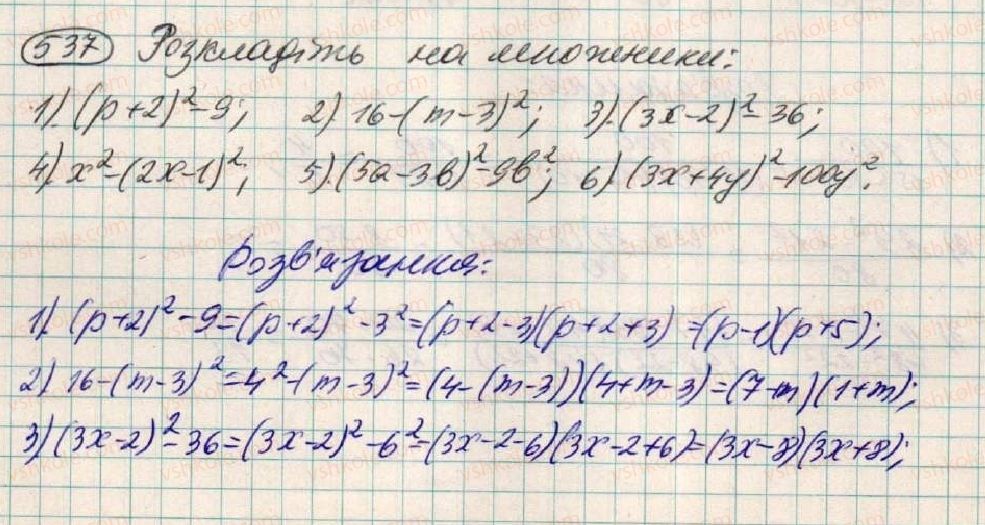 537 Розкладіть на множники:
1) (p+2)²-9; 2) 16-(m-3)²; 3) (3x-2)²-36;
4) x²-(2x-1)²; 5) (5a-3b)²-9b²; 6) (3x+4y)²-100y².
Розв'язання:
1) (p+2)²-9=(p+2)²-3²=(p+2-3)(p+2+3)=(p-1)(p+5);
2) 16-(m-3)²=4²-(m-3)²=(4-(m-3))(4+m-3)=(7-m)(1+m);
3) (3x-2)²-36=(3x-2)²-6²=(3x-2-6)(3x-2+6)=(3x-8)(3x+8);